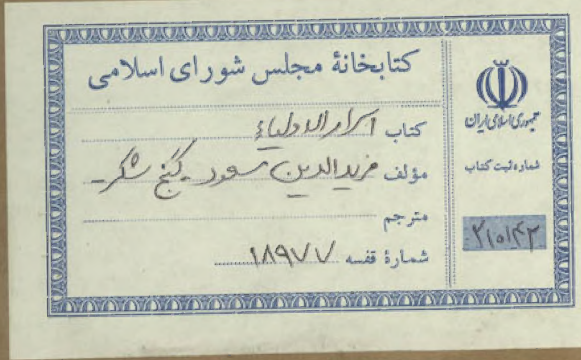 کتابخانهٔ مجلس شورای اسلامی
کتاب اسرار الاولیاء
مؤلف فریدالدین مسعود گنج شکر
مترجم
شمارهٔ قفسه ۱۸۹۷۷
جمهوری اسلامی ایران
شماره ثبت کتاب
۲۱۰۱۴۲